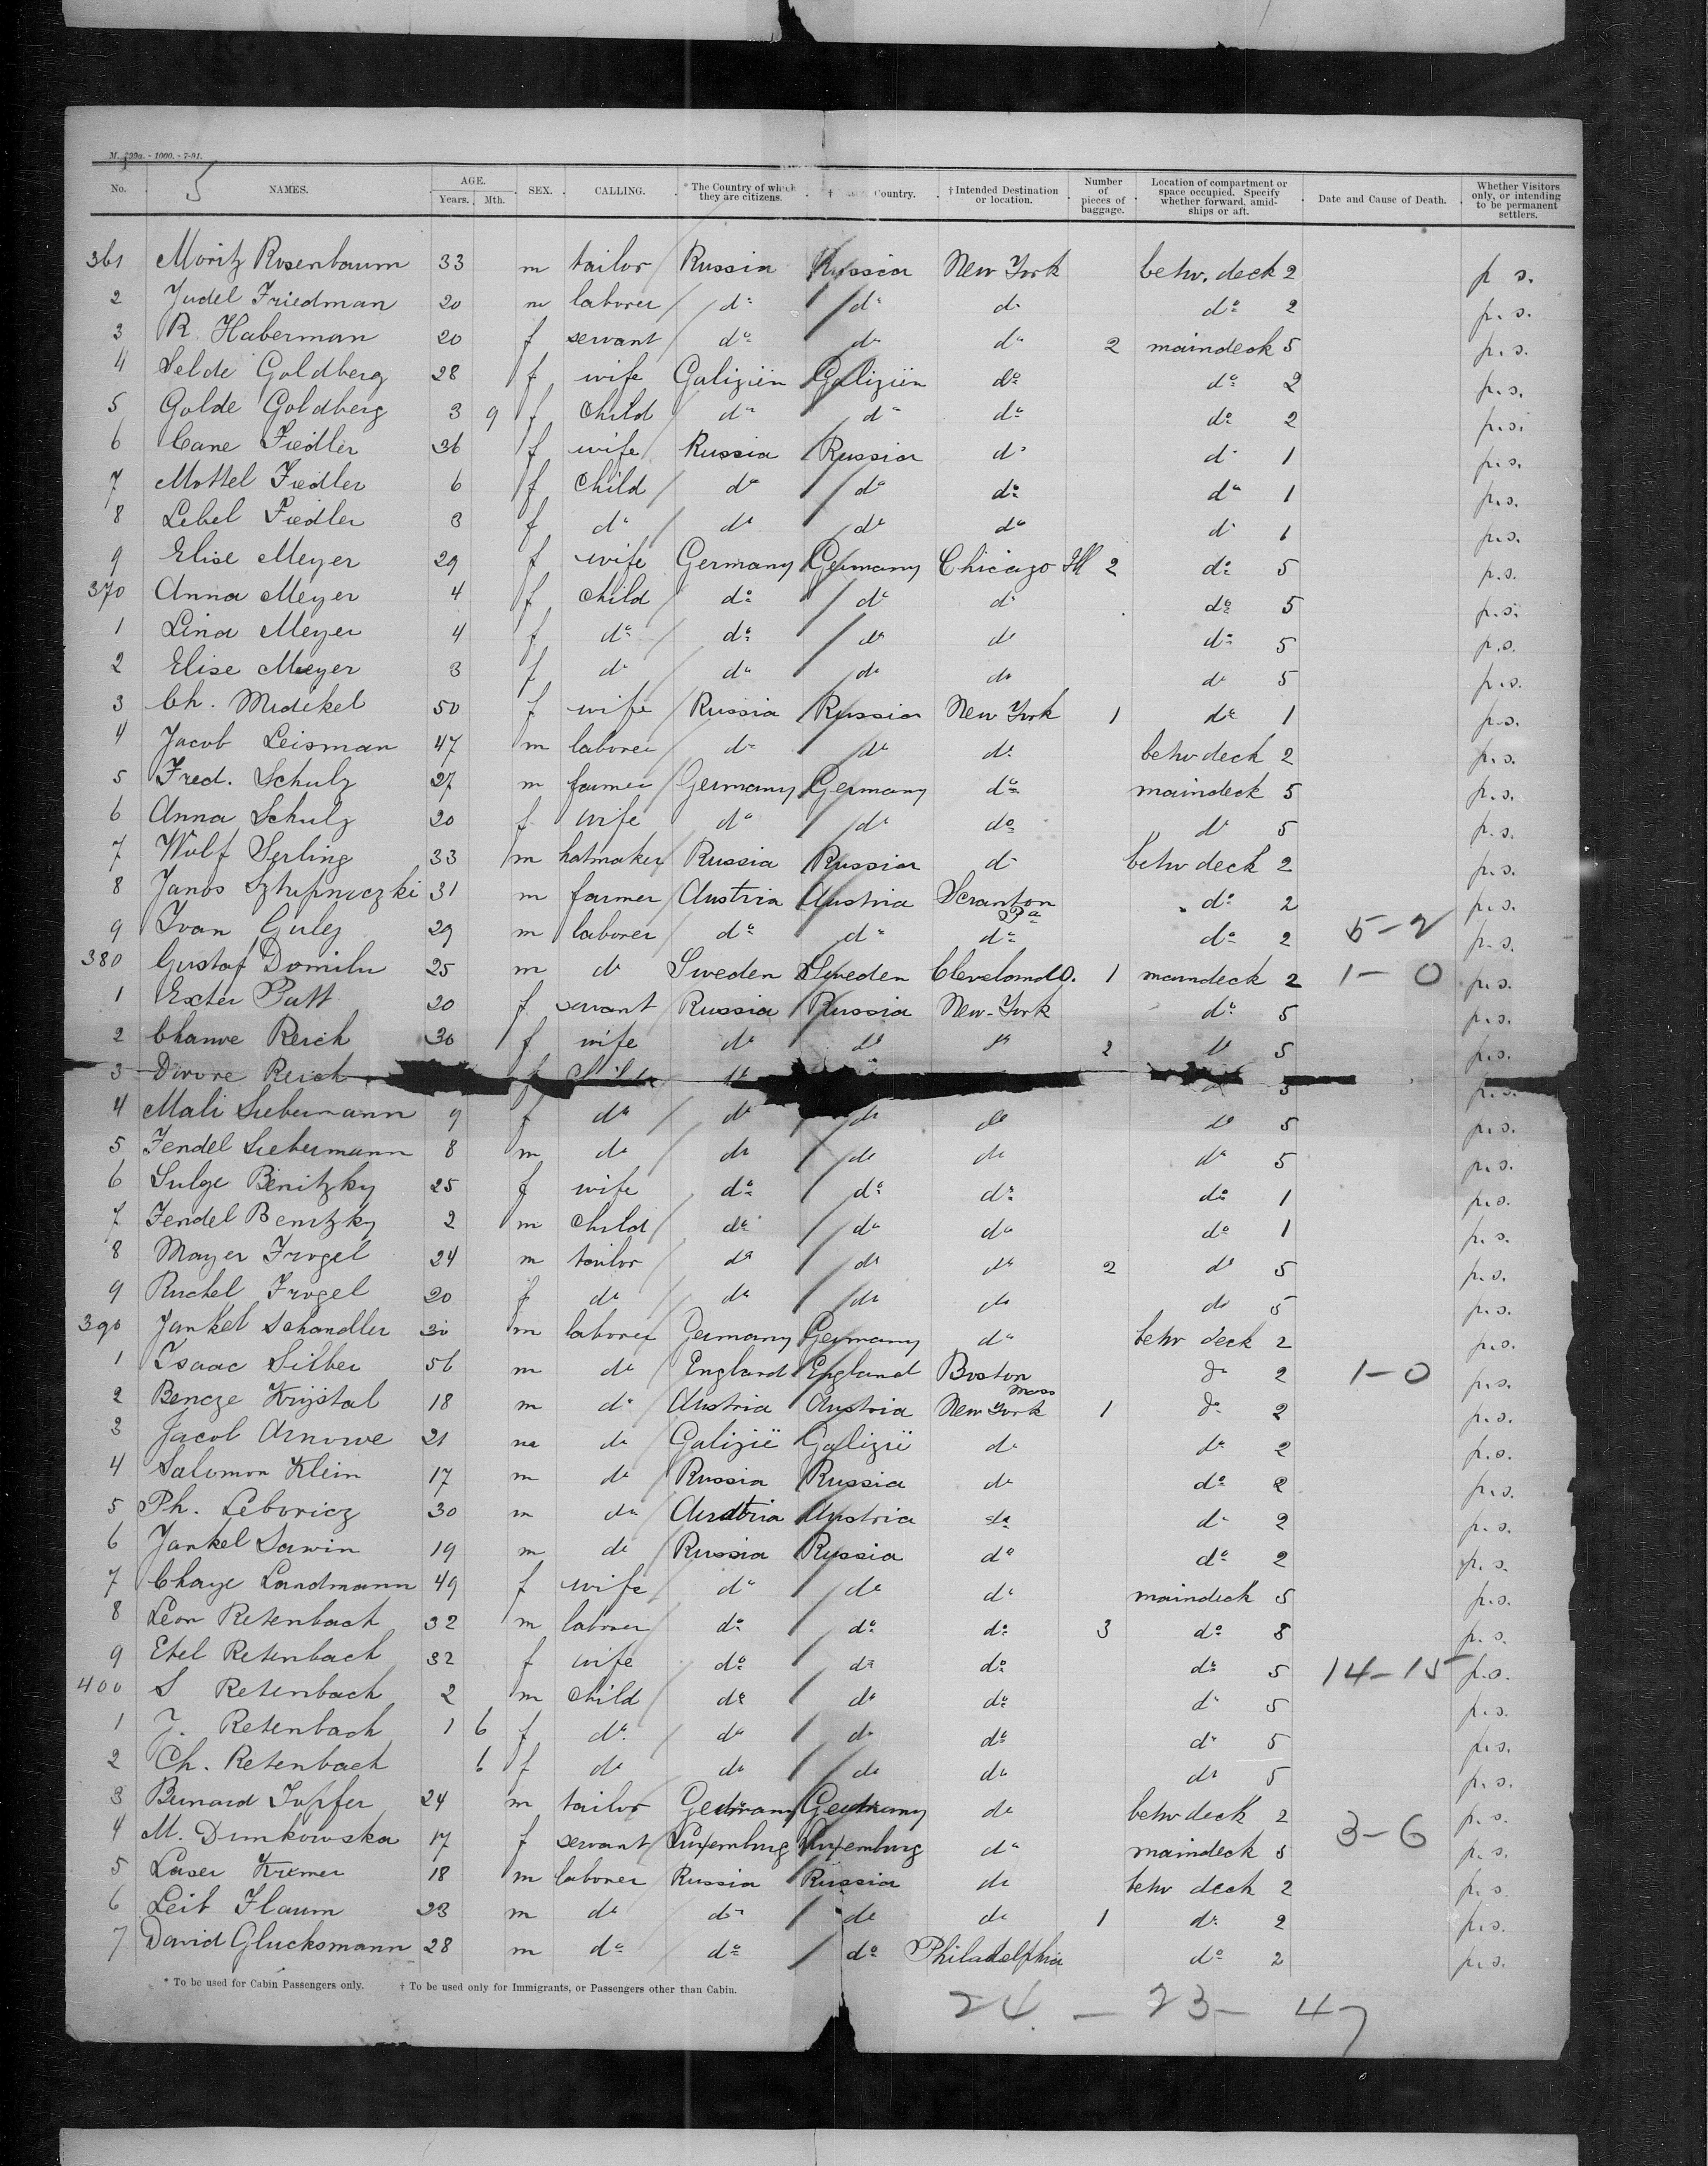 M. 139a. - 1000. - 7-91.
5
No. NAMES. AGE. Years. Mth. SEX. CALLING. * The Country of which they are citizens. † Country. † Intended Destination or location. Number of pieces of baggage. Location of compartment or space occupied. Specify whether forward, amidships or aft. Date and Cause of Death. Whether Visitors only, or intending to be permanent settlers.
361 Moritz Rosenbaum 33 m tailor Russia Russia New York betw. deck 2 p. s.
2 Judel Friedman 20 m laborer do do do do 2 p. s.
3 R. Haberman 20 f servant do do do 2 maindeck 5 p. s.
4 Selde Goldberg 28 f wife Galizien Galizien do do 2 p. s.
5 Golde Goldberg 3 9 f child do do do do 2 p. s.
6 Cane Fiedler 26 f wife Russia Russia do do 1 p. s.
7 Mottel Fiedler 6 f child do do do do 1 p. s.
8 Lebel Fiedler 3 f do do do do do 1 p. s.
9 Elise Meyer 29 f wife Germany Germany Chicago Ill 2 do 5 p. s.
370 Anna Meyer 4 f child do do do do 5 p. s.
1 Lina Meyer 4 f do do do do do 5 p. s.
2 Elise Meyer 3 f do do do do do 5 p. s.
3 Ch. Midekel 50 f wife Russia Russia New York 1 do 1 p. s.
4 Jacob Leisman 47 m laborer do do do betw deck 2 p. s.
5 Fred. Schulz 27 m farmer Germany Germany do maindeck 5 p. s.
6 Anna Schulz 20 f wife do do do do 5 p. s.
7 Wolf Serling 33 m hatmaker Russia Russia do betw deck 2 p. s.
8 Janos 31 m farmer Austria Austria Scranton Pa do 2 p. s.
9 Ivan Gulez 29 m laborer do do do do 2 5-2 p. s.
380 Gustaf Domilu 25 m do Sweden Sweden Cleveland O. 1 maindeck 2 1-0 p. s.
1 Exter Patt 20 f servant Russia Russia New-York do 5 p. s.
2 Channe Reich 30 f wife do do do 2 do 5 p. s.
3 Dwore Reich f child do 5 p. s.
4 Mali Liebermann 9 f do do do do do 5 p. s.
5 Fendel Liebermann 8 m do do do do do 5 p. s.
6 Sulge Benitzky 25 f wife do do do do 1 p. s.
7 Fendel Benitzky 2 m child do do do do 1 p. s.
8 Mayer Frogel 24 m tailor do do do 2 do 5 p. s.
9 Ruchel Frogel 20 f do do do do do 5 p. s.
390 Jankel Schandler 30 m laborer Germany Germany do betw deck 2 p. s.
1 Isaac Silber 56 m do England England Boston Mass do 2 1-0 p. s.
2 Bencze Krystal 18 m do Austria Austria New York 1 do 2 p. s.
3 Jacob Arnowe 21 m do Galizië Galizië do do 2 p. s.
4 Salomon Klein 17 m do Russia Russia do do 2 p. s.
5 Ph. Leboricz 30 m do Austria Austria do do 2 p. s.
6 Jankel Sawin 19 m do Russia Russia do do 2 p. s.
7 Chaye Landmann 49 f wife do do do maindeck 5 p. s.
8 Leon Retenbach 32 m laborer do do do 3 do 8 p. s.
9 Etel Retenbach 32 f wife do do do do 5 14-15 p. s.
400 S Retenbach 2 m child do do do do 5 p. s.
1 J. Retenbach 1 6 f do do do do do 5 p. s.
2 Ch. Retenbach 6 f do do do do do 5 p. s.
3 Bernard Topfer 24 m tailor Germany Germany do betw deck 2 p. s.
4 M. Dimkowska 17 f servant Luxemburg Luxemburg do maindeck 5 3-6 p. s.
5 Laser Kremer 18 m laborer Russia Russia do betw deck 2 p. s.
6 Leib Flaum 23 m do do do do 1 do 2 p. s.
7 David Glucksmann 28 m do do do Philadelphia do 2 p. s.
* To be used for Cabin Passengers only. † To be used only for Immigrants, or Passengers other than Cabin.
24. - 23 - 47